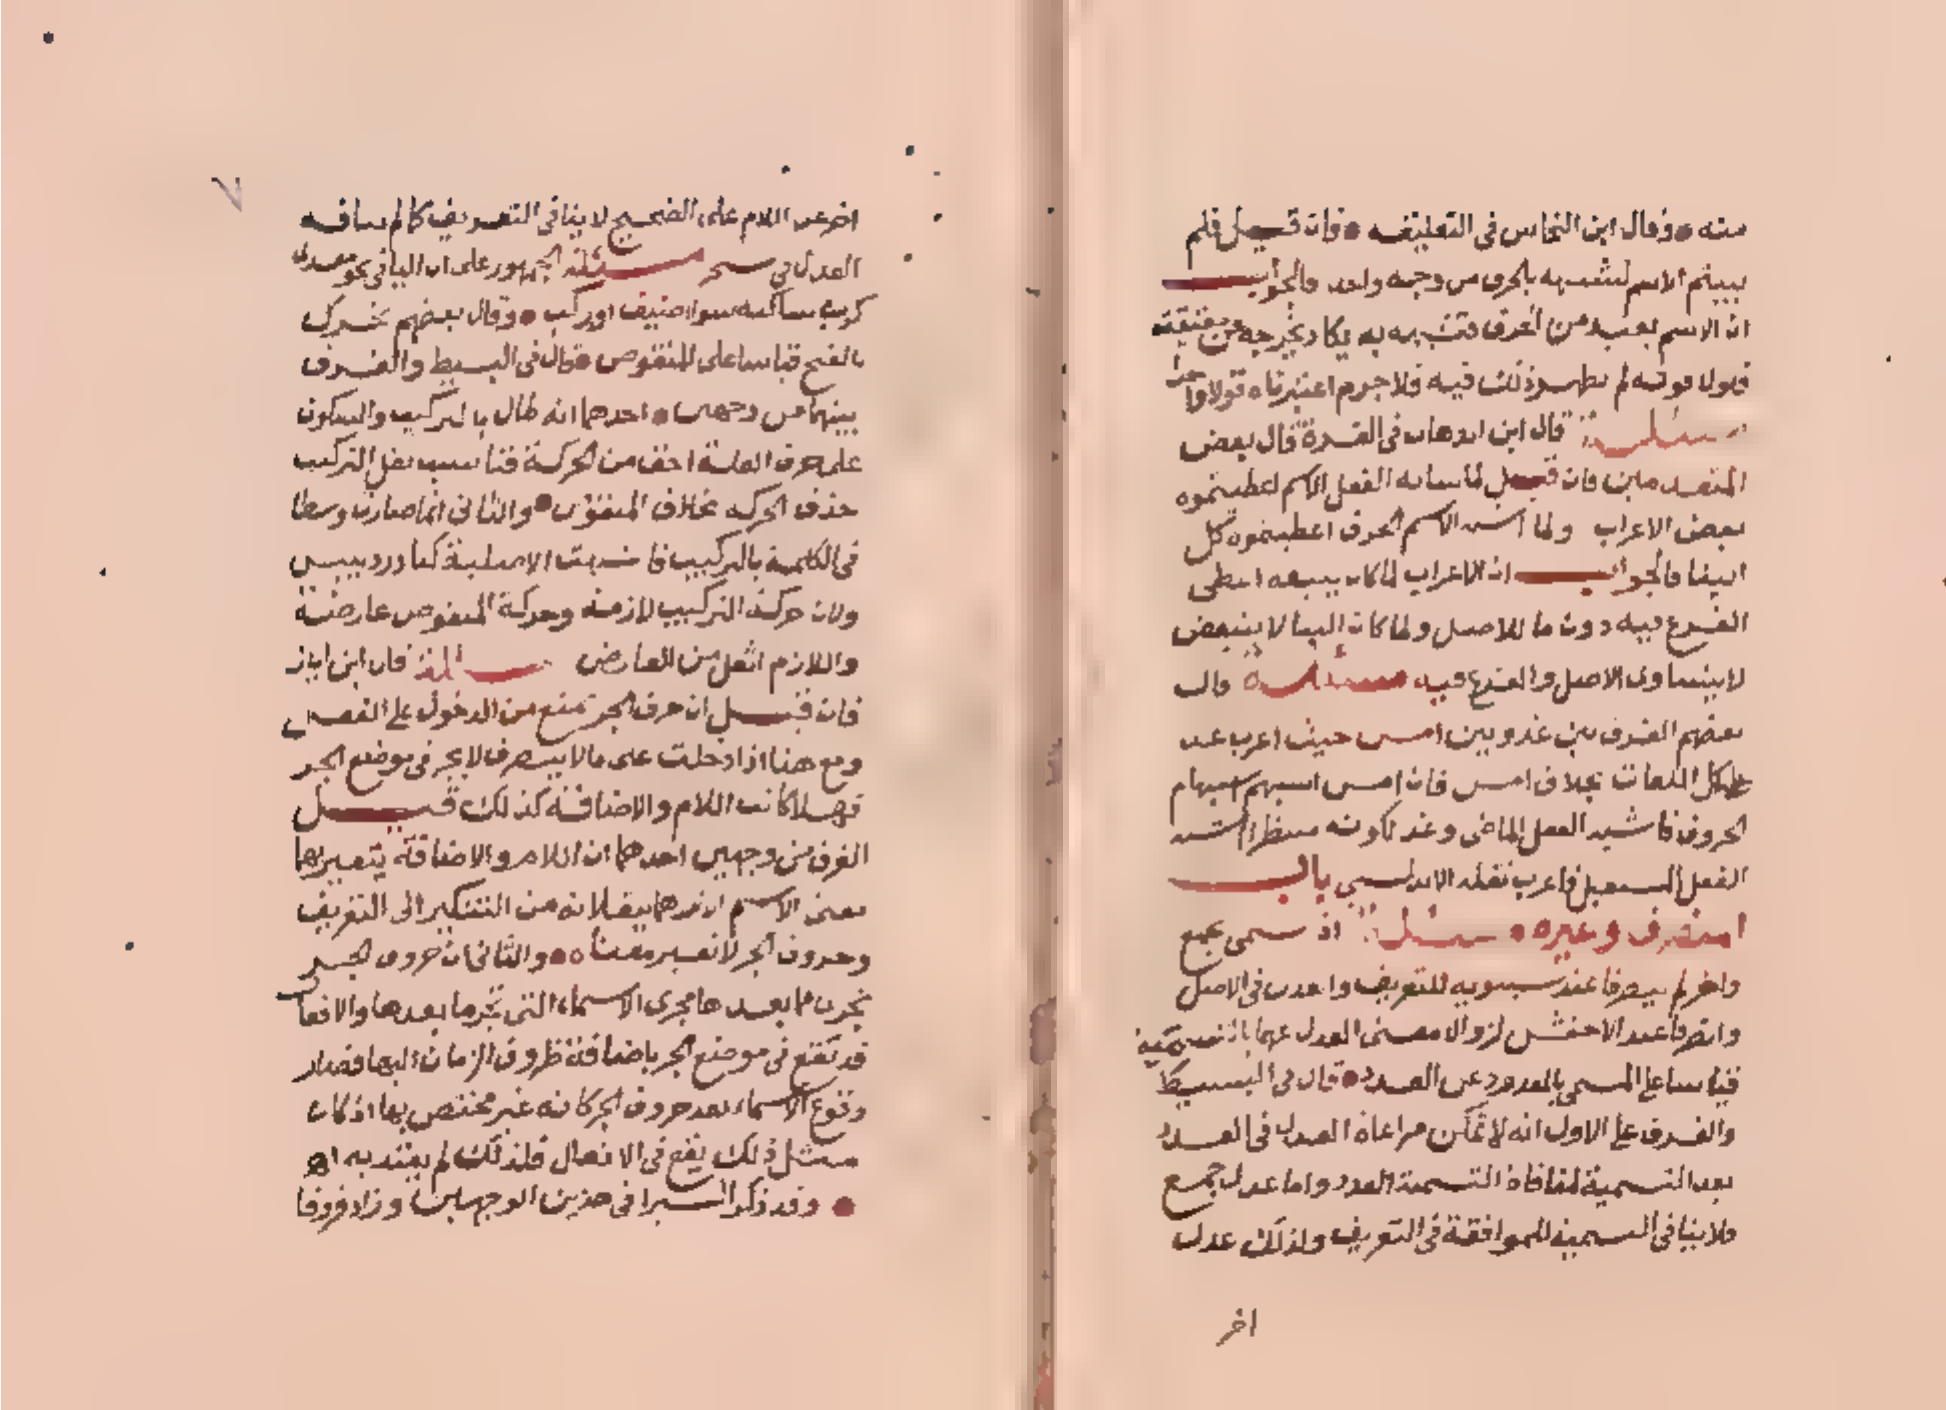 منه وقال ابن النحاس في التعليقه فان قيل فلم
بنيتم الاسم لشبهه بالحرف من وجه واحد فالجواب
ان الاسم بعيد من الحرف فشبهه به يكاد يخرجه عن حقيقته
فلولا قوته لم يظهر ذلك فيه فلا جرم اعتبرناه قولا واحدا
مسئلة قال ابن الدهان في الغرة قال بعض
المتقدمين فان قيل لما شابه الفعل الاسم اعطيتموه
بعض الاعراب ولما اشبه الاسم الحرف اعطيتموه كل
البنا فالجواب ان الاعراب لما كان يتبعض اعطى
الفرع فيه دون ما للاصل ولما كان البنا لا يتبعض
لا يتساوى الاصل والفرع فيه مسئلة قال
بعضهم الفرق بين غد وبين امس حيث اعرب غد
على كل اللغات بخلاف امس فان امس استبهم استبهام
الحروف فاشبه الفعل الماضى وغد لكونه منتظرا اشبه
الفعل المستقبل فاعرب نقله الاندلسي باب
المنصرف وغيره مسئلة اذا سمى بجمع
واخر لم ينصرفا عند سيبويه للتعريف والعدل في الاصل
وانصرفا عند الاخفش لزوال معنى العدل عنهما بالتسمية
قياسا على المسمى بالمعدود عن العدد قال في البسيط
والفرق على الاول انه لا يمكن مراعاة العدل في العدد
بعد التسمية لمنافاة التسمية العدد واما عدل جمع
فلا ينافى التسمية للموافقة في التعريف ولذلك عدل
اخر
٧
اخر عن اللام على الصحيح لا ينافى التعريف كما لم ينافه
العدل في سحر مسئلة الجمهور على ان اليا في نحو معدى
كرب ساكنه سوا اضيف او ركب وقال بعضهم تحرك
بالفتح قياسا على المنقوص قال في البسيط والفرق
بينهما من وجهين احدهما انه طال بالتركيب والسكون
على حرف العلة اخف من الحركة فناسب ثقل التركيب
حذف الحركه بخلاف المنقوص والثانى انها صارت وسطا
في الكلمة بالتركيب فاشبهت الاصلية كيا دردبيس
ولان حركة التركيب لازمة وحركة المنقوص عارضة
واللازم اثقل من العارض مسئلة قال ابن اياز
فان قيل ان حرف الجر تمنع من الدخول على الفعل
ومع هذا اذا دخلت على ما لا ينصرف لا يجر في موضع الجر
فهلا كانت اللام والاضافة كذلك قيل
الفرق من وجهين احدهما ان اللام والاضافة يتغير بهما
معنى الاسم لانهما ينقلانه من التنكير الى التعريف
وحروف الجر لا تغير معناه والثانى ان حروف الجر
تجرى مما بعدها مجرى الاسماء التى تجر ما بعدها والافعال
قد تقع في موضع الجر باضافة ظروف الزمان اليها فصار
وقوع الاسماء بعد حروف الجر كانه غير مختص بها اذ كان
مثل ذلك يقع في الافعال فلذلك لم يعتد به اه
وقد ذكر السيرافى هذين الوجهين وزاد فروقا